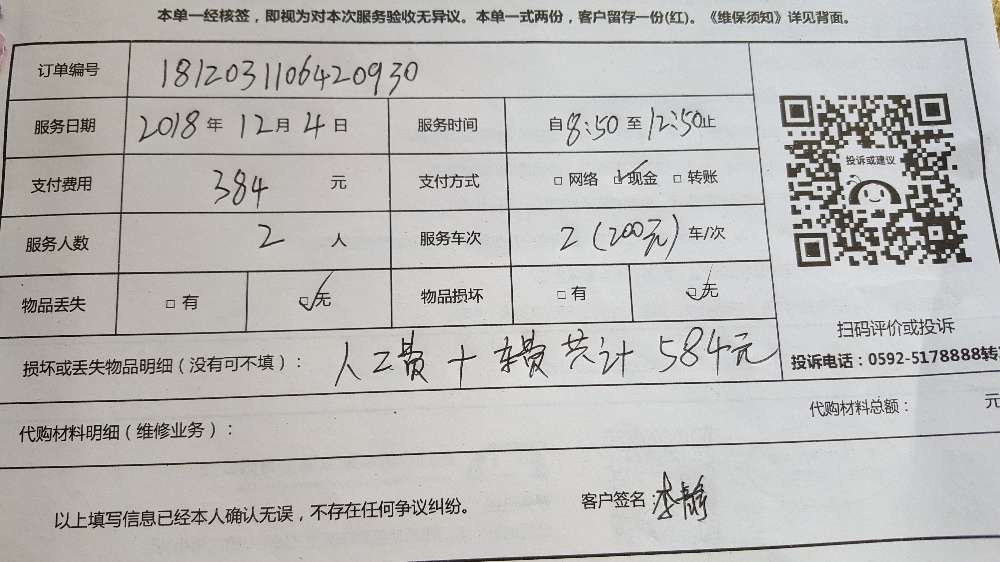 本单一经核签，即视为对本次服务验收无异议。本单一式两份，客户留存一份(红)。《维保须知》详见背面。
订单编号 1812031106420930
服务日期 2018年12月4日 服务时间 自8:50至12:50止
支付费用 384元 支付方式 □网络 ☑现金 □转账
投诉或建议
服务人数 2人 服务车次 2(200元)车/次
物品丢失 □有 ☑无 物品损坏 □有 ☑无
扫码评价或投诉
损坏或丢失物品明细（没有可不填）：人工费+车费共计584元
投诉电话：0592-5178888转
代购材料明细（维修业务）： 代购材料总额： 元
以上填写信息已经本人确认无误，不存在任何争议纠纷。 客户签名：李静